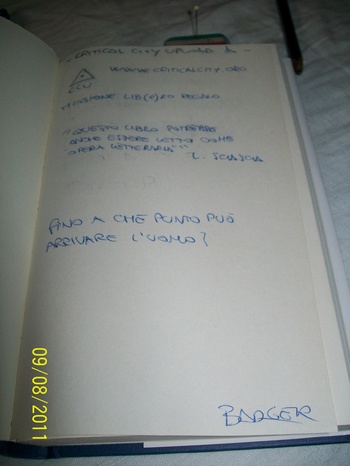 - CRITICAL CITY UPLOAD △ -
WWW.CRITICALCITY.ORG
CCU
MISSIONE LIB(E)RO REGALO
"QUESTO LIBRO POTREBBE
ANCHE ESSERE LETTO COME
OPERA LETTERARIA"
L. SCIASCIA
FINO A CHE PUNTO PUÒ
ARRIVARE L'UOMO?
BADGER
09/08/2011